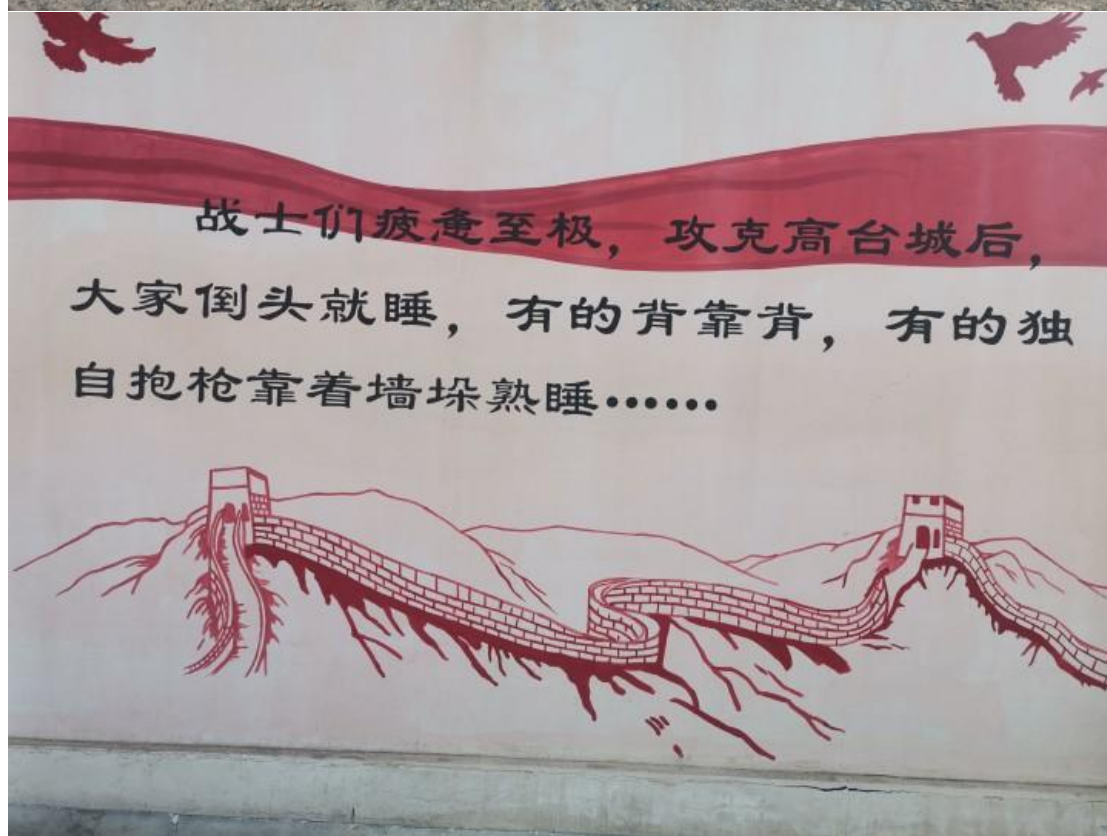 战士们疲惫至极，攻克高台城后，
大家倒头就睡，有的背靠背，有的独
自抱枪靠着墙垛熟睡······